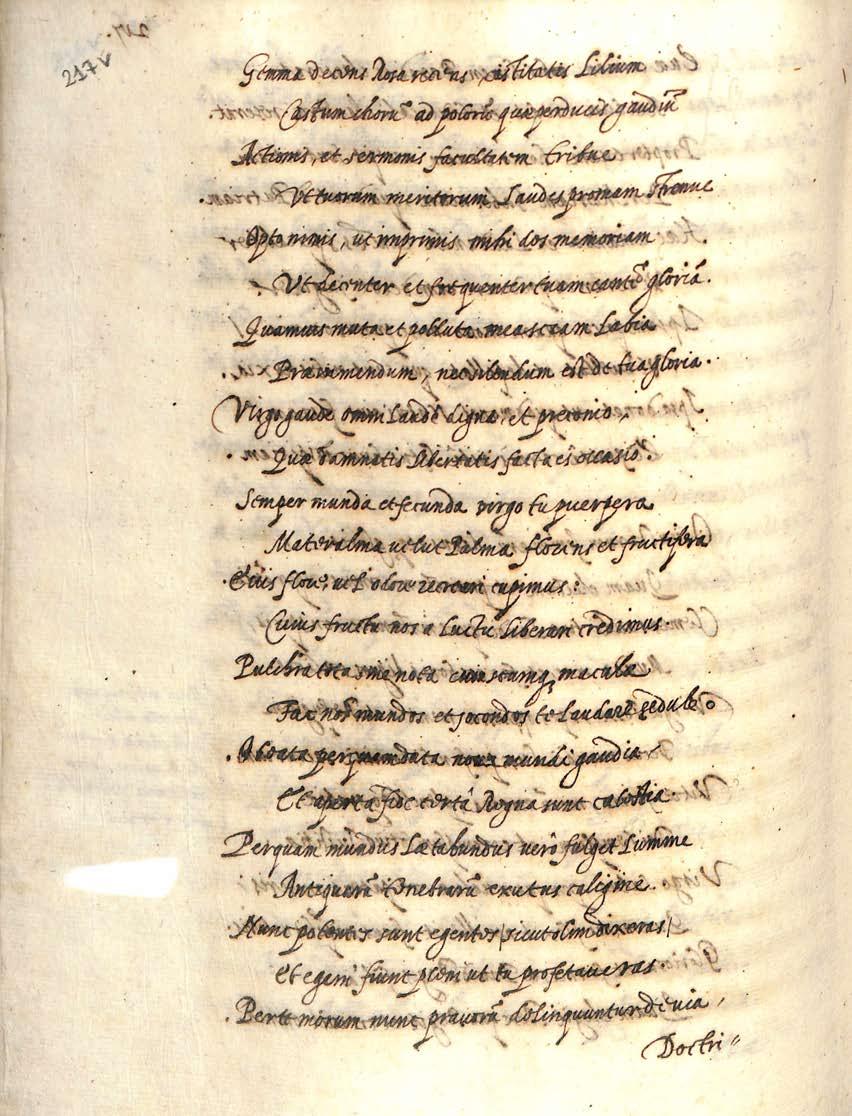 217v
217.
Gemma decens Rosa recens castitatis Lilium
Castum chorũ ad polorũ quæ perducis gaudiũ
Actionis, et sermonis facultatem tribue
Vt tuorum meritorum Laudes promam strenue
Opto nimis, ut imprimis mihi dos memoriam
Vt decenter et frequenter tuam cantẽ gloriã.
Quamuis muta et polluta mea sciam Labia
Præsumendum, nec silendum est de tua gloria.
Virgo gaude omni Laude digna, et preconio,
Quæ damnatis libertatis facta es occasio.
Semper munda et fecunda virgo tu puerpera
Mater alma uelut Palma florens et fructifera
Cuius flore, uel odore recreari cupimus:
Cuius fructu nos a Luctu liberari credimus.
Pulchra tota sine nota cuiuscumq; maculæ
Fac nos mundos et jocondos te Laudare sedulo
O beata per quam data noua mundi gaudia,
Et aperta fide certa Regna sunt cælestia.
Per quam mundus Lætabundus vero fulget Lumine
Antiquarũ tenebrarũ exutus caligine.
Nunc potentes sunt egentes (sicut olim dixeras)
Et egeni fiunt pleni ut tu profetaueras.
Per te morum nunc prauorũ delinquuntur deuia,
Doctri"